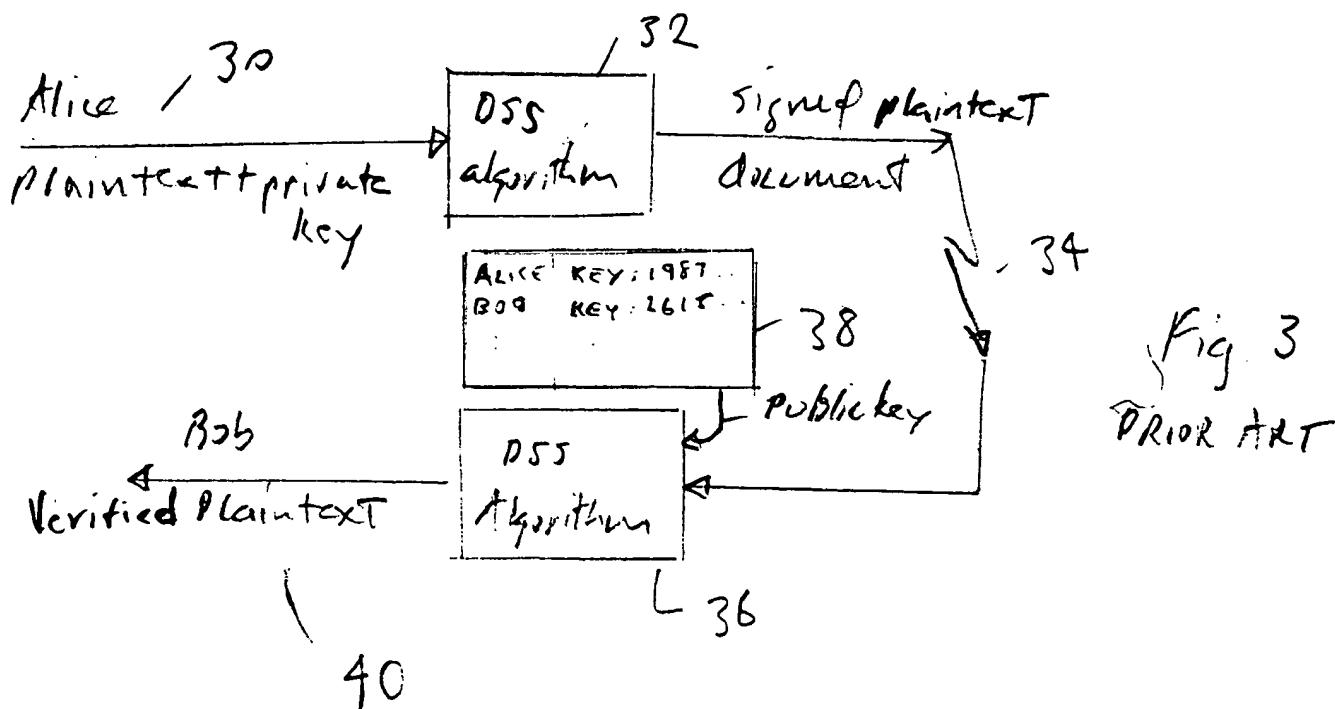 Alice
30
plaintext + private
key
32
DSS
algorithm
signed plaintexT
document
34
ALICE KEY: 1987..
BOB KEY: 2615...
38
public key
Fig. 3
PRIOR ART
Bob
Verified PlaintexT
DSS
Algorithm
36
40